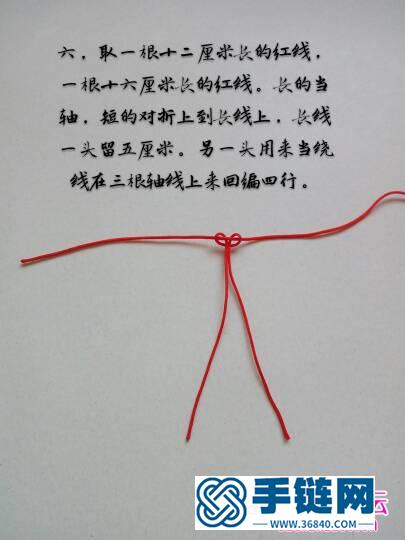 六，取一根十二厘米长的红线，
一根十六厘米长的红线。长的当
轴，短的对折上到长线上，长线
一头留五厘米。另一头用来当绕
线在三根轴线上来回编四行。
云
手链网
www.36840.com